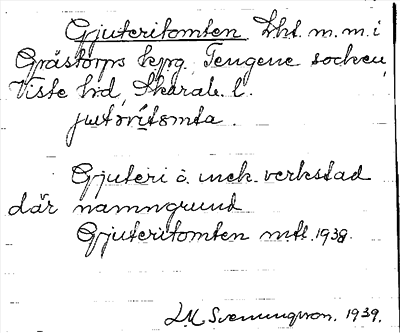 Gjuteritomten Lht. m.m. i
Grästorps kpg. Tengene socken,
Viste hd, Skarab. l.
jutərìtomta.
Gjuteri o. mek. verkstad
där namngrund
Gjuteritomten mtl. 1938.
L.M. Svenungsson. 1939.